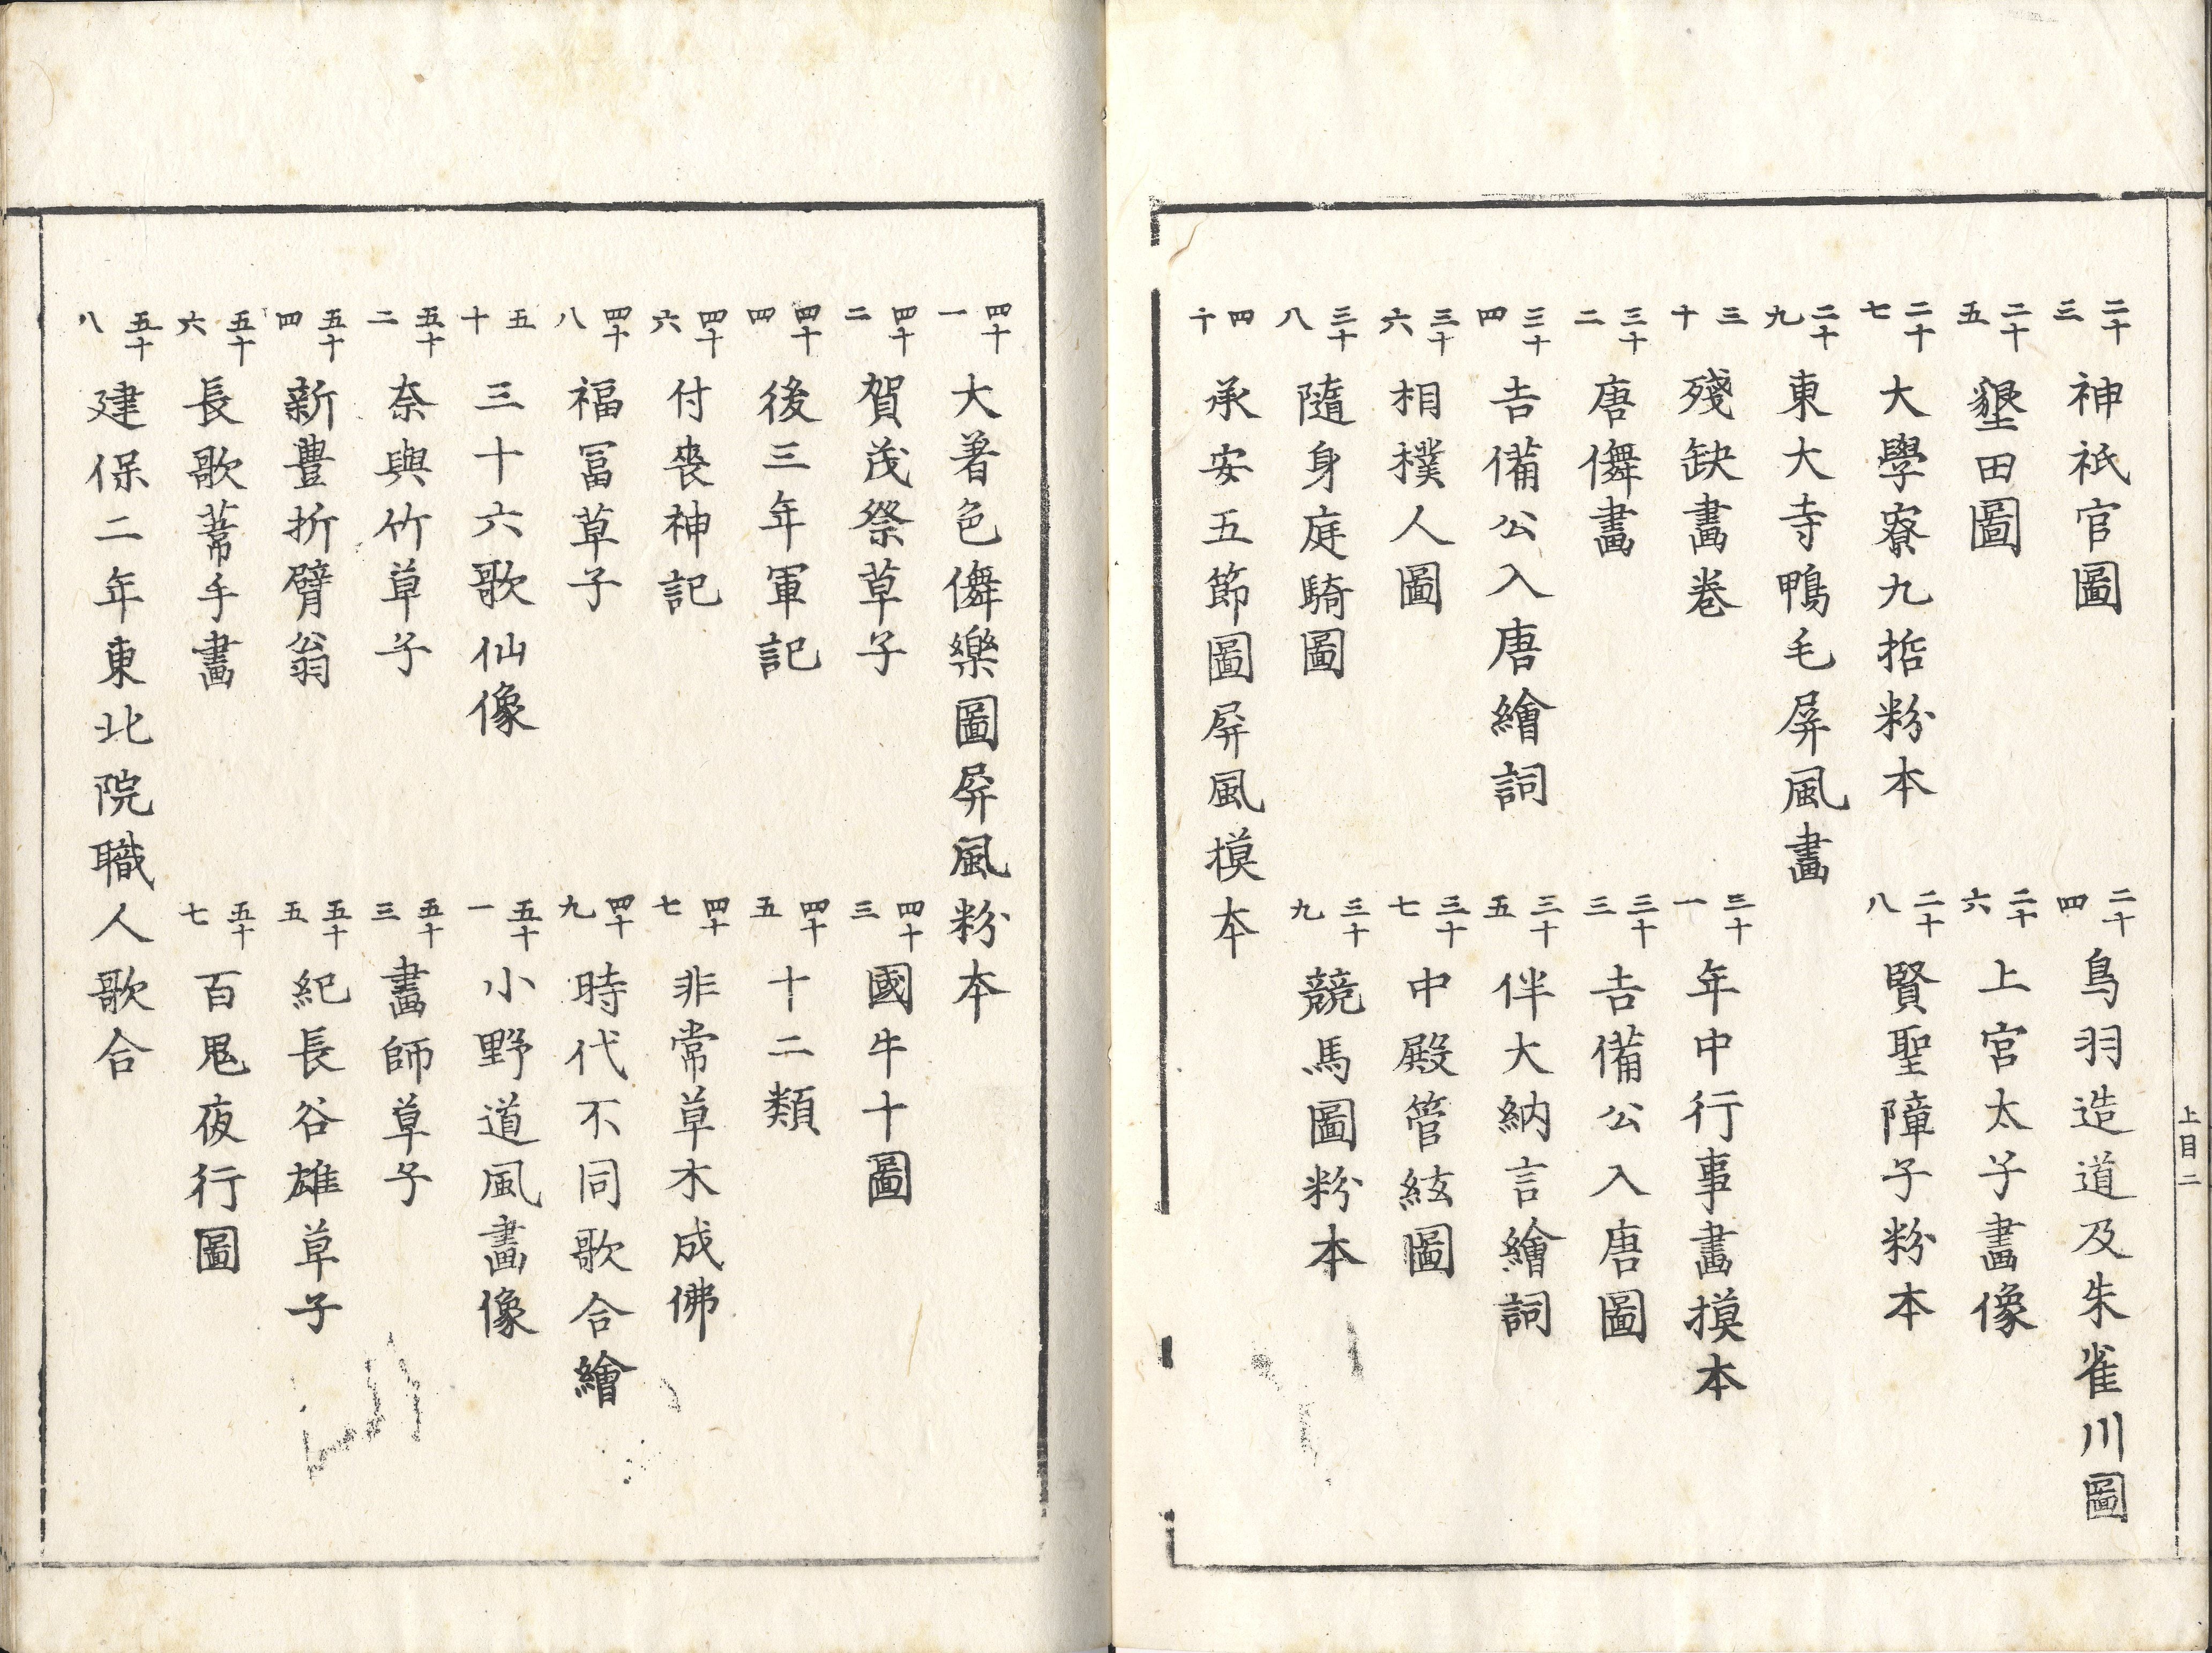 二十三 神祇官圖 二十四 鳥羽造道及朱雀川圖
二十五 墾田圖 二十六 上宮太子畫像
二十七 大學寮九哲粉本 二十八 賢聖障子粉本
二十九 東大寺鴨毛屛風畫
三十 殘缺畫卷 三十一 年中行事畫摸本
三十二 唐儛畫 三十三 吉備公入唐圖
三十四 吉備公入唐繪詞 三十五 伴大納言繪詞
三十六 相撲人圖 三十七 中殿管絃圖
三十八 隨身庭騎圖 三十九 競馬圖粉本
四十 承安五節圖屛風摸本
上目二
四十一 大着色儛樂圖屛風粉本
四十二 賀茂祭草子 四十三 國牛十圖
四十四 後三年軍記 四十五 十二類
四十六 付喪神記 四十七 非常草木成佛
四十八 福冨草子 四十九 時代不同歌合繪
五十 三十六歌仙像 五十一 小野道風畫像
五十二 奈與竹草子 五十三 畫師草子
五十四 新豊折臂翁 五十五 紀長谷雄草子
五十六 長歌葦手畫 五十七 百鬼夜行圖
五十八 建保二年東北院職人歌合